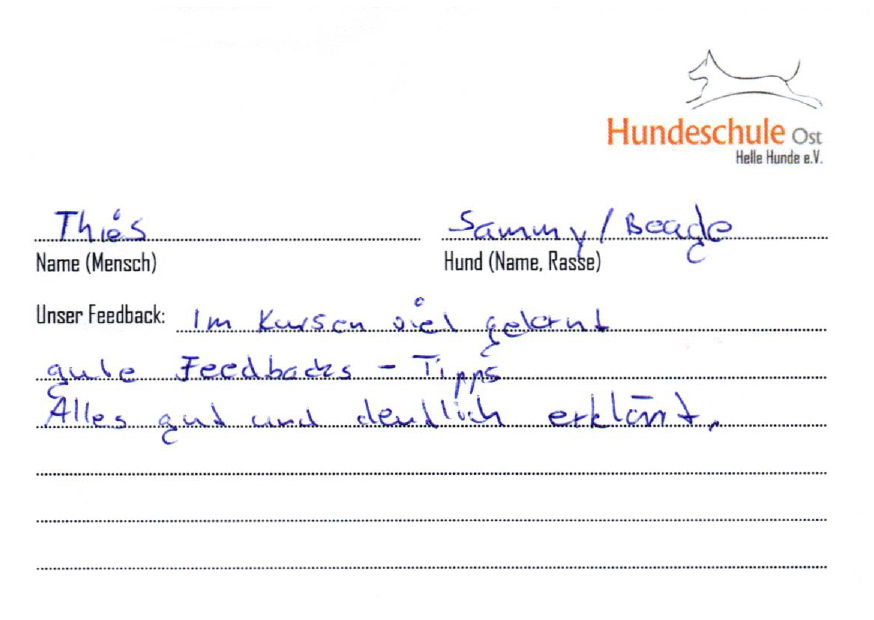 Hundeschule Ost
Helle Hunde e.V.
Thies Sammy / Beagle
Name (Mensch) Hund (Name, Rasse)
Unser Feedback: Im Kursen viel gelernt
gute Feedbacks - Tipps
Alles gut und deutlich erklärt.